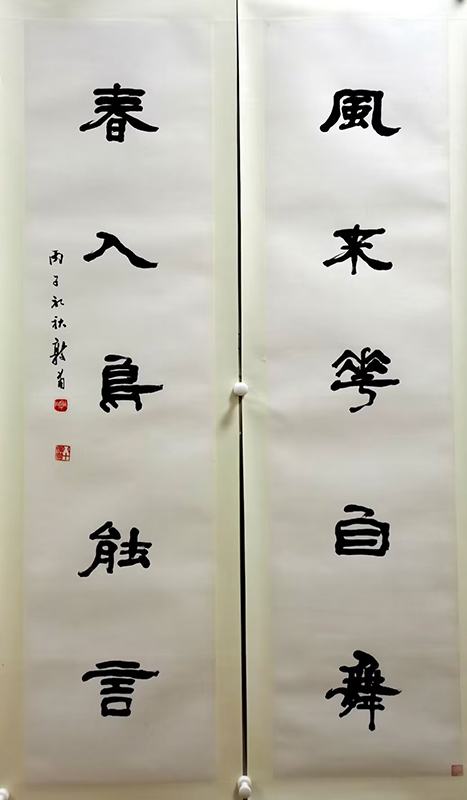 風来華自舞
春入鳥能言
丙子初秋敦甫